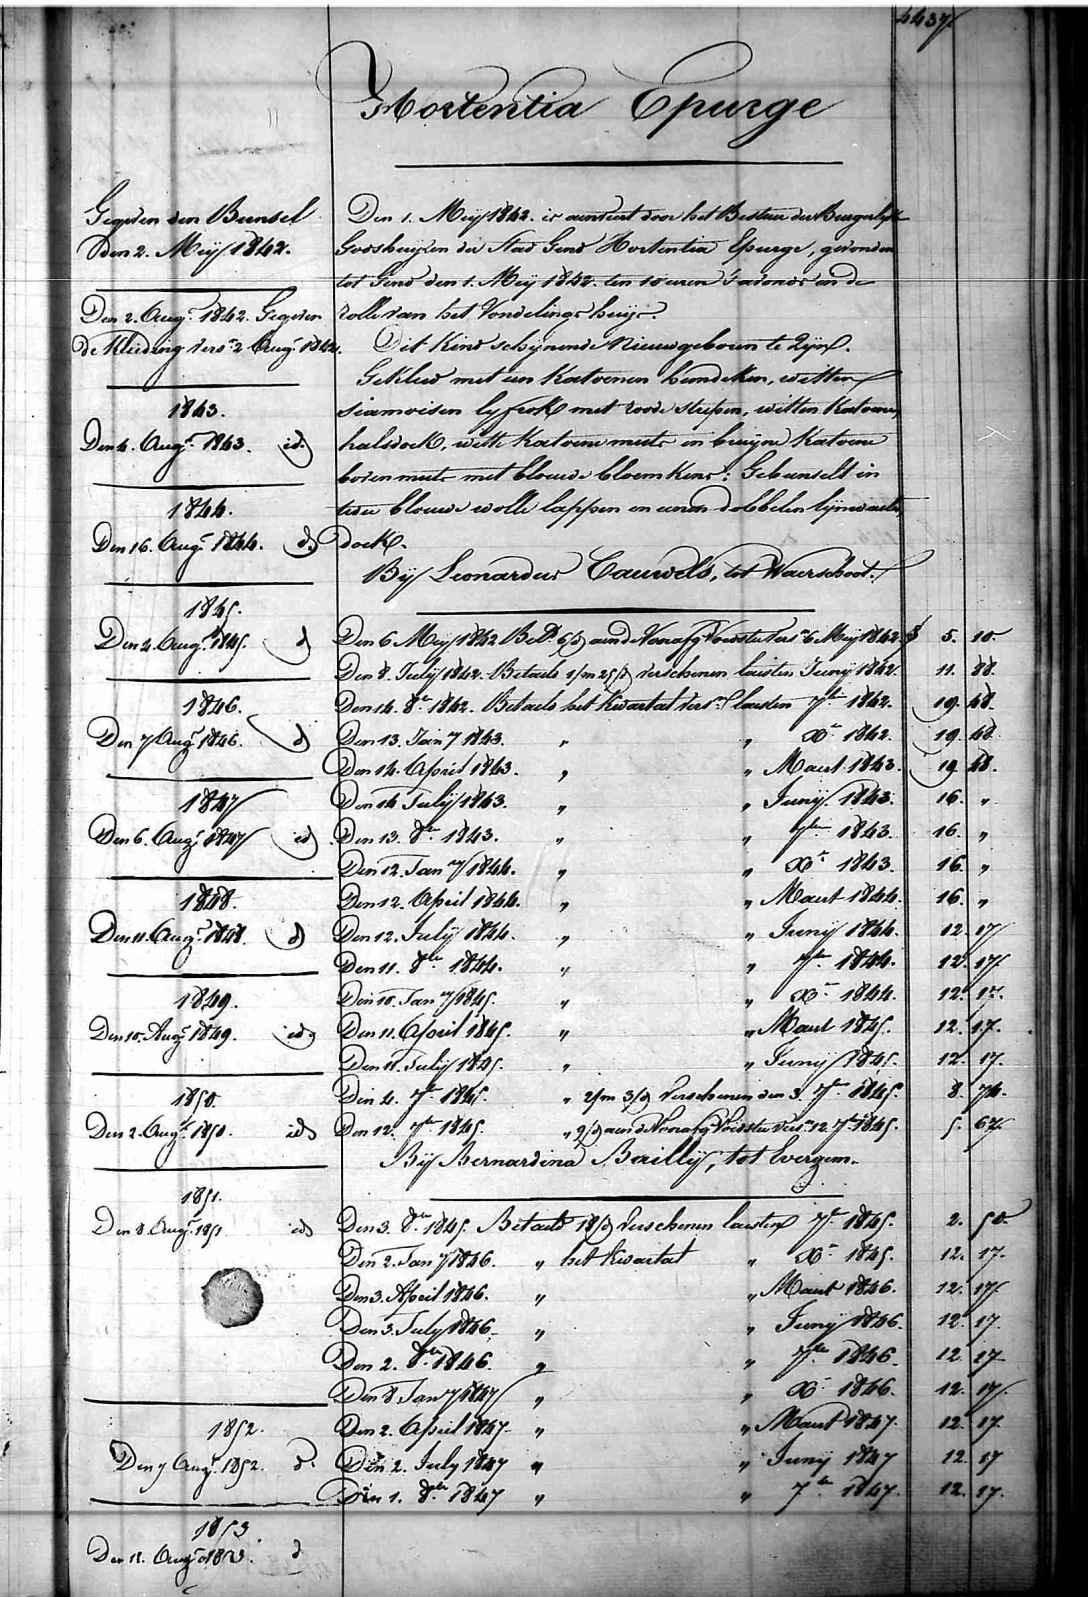 4437.
Hortentia Epurge
Gegeven den Bunsel
den 2. Meij 1842.
Den 2. Augt 1842. Gegeven
de Kleeding vers. 2 Augt 1842.
1843.
Den 4. Augt 1843. id.
1844.
Den 16. Augt 1844. d.
1845.
Den 4. Augt 1845. d
1846.
Den 7 Augt 1846. d
1847
Den 6. Augt 1847 id
1848.
Den 11. Augt 1848. d
1849.
Den 10. Augt 1849. id.
1850.
Den 2. Augt 1850. id
1851.
Den 8. Augt 1851 id
1852.
Den 7 Augt 1852. d.
1853.
Den 11. Augt 1853. d
Den 1. Meij 1842. is aenveert door het Bestier der Burgerlijke
Godshuijzen der Stad Gend Hortentia Epurge, gevonden
tot Gend den 1. Meij 1842. ten 10 uren 's avonds in de
rolle van het Vondelings huijs.
Dit Kind schijnende Nieuwgeboren te Zijn.
Gekleed met een Katoenen hemdeken, witten
siamoisen lyfrok met roode strepen, witten Katoenen
halsdoek, witte Katoene muts en bruijne Katoene
boven muts met blauwe bloemkens: Gebunselt in
twee blauwe wolle lappen en eenen dobbelen lijnwaeten
doek.
Bij Leonardus Cauwels, tot Waerschoot.
Den 6 Meij 1842 Betd. 6/d aen de Voorafg. Voedster vers. 6 Meij 1842. f 5. 10.
Den 8. Julij 1842. Betaeld 1/m 25/d verschenen laesten Junij 1842. 11. 88.
Den 14. 8er 1842. Betaeld het Kwartael vers. laesten 7er 1842. 19. 48.
Den 13. Jan.y 1843. " " Xr 1842. 19. 48.
Den 14. April 1843. " " Maert 1843. 19. 48.
Den 14 Julij 1843. " " Junij. 1843. 16. "
Den 13. 8er 1843. " " 7er 1843. 16. "
Den 12. Jan.y 1844. " " Xr 1843. 16. "
Den 12. April 1844. " " Maert 1844. 16. "
Den 12. Julij 1844. " " Junij 1844. 12. 17
Den 11. 8er 1844. " " 7er 1844. 12. 17.
Den 10. Jan.y 1845. " " Xr 1844. 12. 17.
Den 11. April 1845. " " Maert 1845. 12. 17.
Den 11. Julij 1845. " " Junij 1845. 12. 17.
Den 4. 7er 1845. " 2/m 3/d Verschenen den 3. 7er 1845. 8. 74.
Den 12. 7er 1845. " 9/d aen de Voorafg. Voedster vers. 12 7er 1845. 5. 67.
Bij Bernardina Bailly, tot Evergem.
Den 3. 8er 1845. Betaeld 18/d Verschenen laesten 7er 1845. 2. 50.
Den 2. Jan.y 1846. " het Kwartael " Xr 1845. 12. 17.
Den 3. April 1846. " " Maert 1846. 12. 17.
Den 3. July 1846. " " Junij 1846. 12. 17.
Den 2. 8er 1846. " " 7er 1846. 12. 17
Den 8 Jan.y 1847 " " Xr 1846. 12. 17.
Den 2. April 1847. " " Maert 1847. 12. 17.
Den 2. July 1847 " " Junij 1847 12. 17
Den 1. 8er 1847 " " 7er 1847. 12. 17.